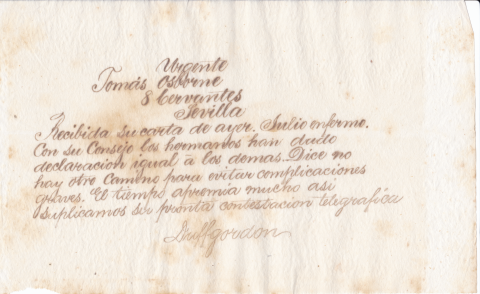 Urgente
Tomás Osborne
8 Cervantes
Sevilla
Recibida su carta de ayer. Julio enfermo.
Con su Consejo los hermanos han dado
declaracion igual á los demas. Dice no
hay otro camino para evitar complicaciones
graves. El tiempo apremia mucho asi
suplicamos su pronta contestacion telegrafica
Duffgordon